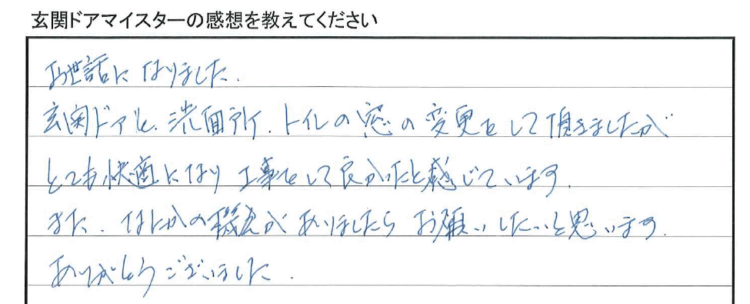 玄関ドアマイスターの感想を教えてください
お世話になりました.
玄関ドアと、洗面所、トイレの窓の変更をして頂きましたが
とても快適になり工事をして良かったと感じています.
また、なにかの機会がありましたらお願いしたいと思います.
ありがとうございました.